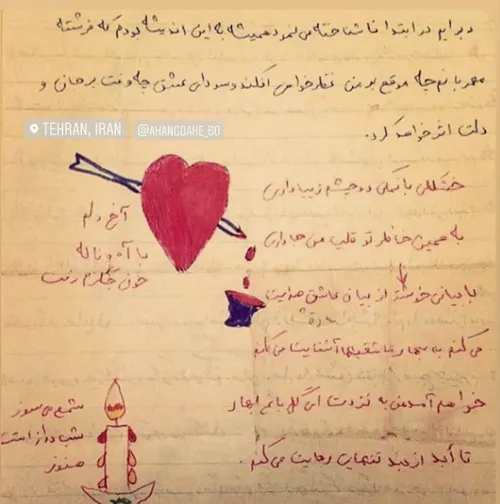 دیرایم در ابتدا ناشناخته می نمود همیشه به این اندیشه بودم که فرشته
مهربانم چه موقع بر من نظر خواهد افکند و سودای عشق چه وقت بر جان و
دلت اثر خواهد کرد.
TEHRAN, IRAN
@AHANGDAHE_60
خوشگلی بانمکی دو چشم زیبا داری
به همین خاطر تو قلب من جا داری
آخ دلم
با آه و ناله
خون جگرم رفت
با بیانی خوشتر از بیان عاشق صدایت
می کنم به سحر عاشقیها آشنایت می کنم
خواهم آمدن به نزدت ای گل باغ بهار
تا آید از دید تنهایی رهایت می کنم.
شمع می سوزد
شب دراز است
هنوز